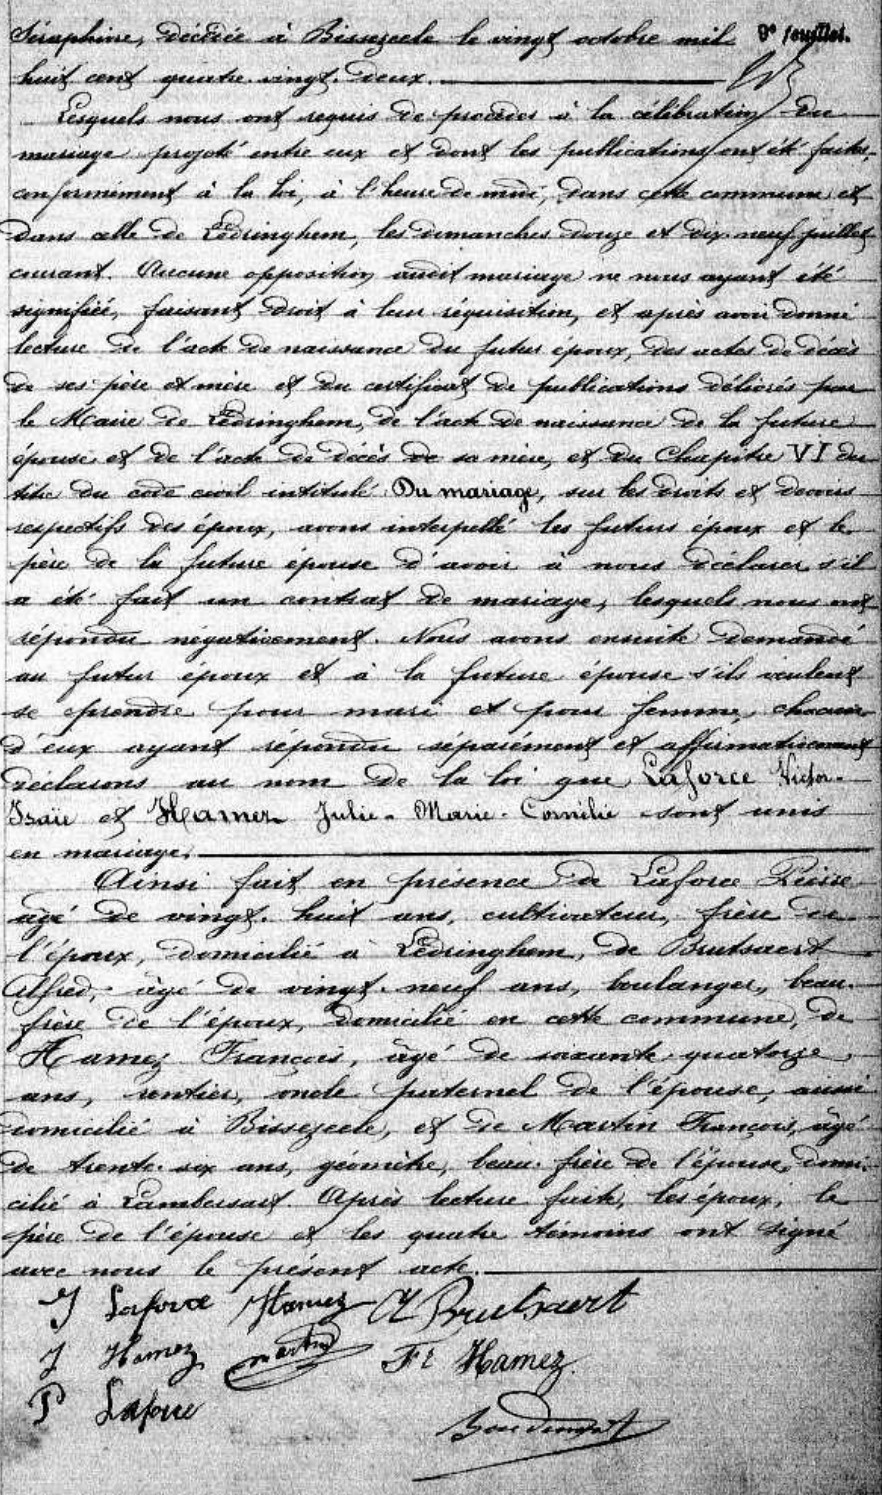 Séraphine, décédée à Bissezeele le vingt octobre mil 9e feuillet.
huit cent quatre-vingt-deux.
Lesquels nous ont requis de procéder à la célébration du
mariage projeté entre eux et dont les publications ont été faites,
conformément à la loi, à l'heure de midi, dans cette commune et
dans celle de Lédringhem, les dimanches douze et dix-neuf juillet
courant. Aucune opposition audit mariage ne nous ayant été
signifiée, faisant droit à leur réquisition, et après avoir donné
lecture de l'acte de naissance du futur époux, des actes de décès
de ses père et mère et du certificat de publications délivrés par
le Maire de Lédringhem, de l'acte de naissance de la future
épouse et de l'acte de décès de sa mère, et du Chapitre VI du
titre du code civil intitulé Du mariage, sur les droits et devoirs
respectifs des époux, avons interpellé les futurs époux et le
père de la future épouse d'avoir à nous déclarer s'il
a été fait un contrat de mariage, lesquels nous ont
répondu négativement. Nous avons ensuite demandé
au futur époux et à la future épouse s'ils veulent
se prendre pour mari et pour femme, chacun
d'eux ayant répondu séparément et affirmativement
déclarons au nom de la loi que Laforce Victor-
Isaïe et Hamez Julie-Marie-Cornélie sont unis
en mariage.
Ainsi fait en présence de Laforce Pierre
âgé de vingt-huit ans, cultivateur, frère de
l'époux, domicilié à Lédringhem, de Brutsaert
Alfred, âgé de vingt-neuf ans, boulanger, beau-
frère de l'époux, domicilié en cette commune, de
Hamez François, âgé de soixante-quatorze
ans, rentier, oncle paternel de l'épouse, aussi
domicilié à Bissezeele, et de Martin François, âgé
de trente-six ans, géomètre, beau-frère de l'épouse, domi-
cilié à Lambersart. Après lecture faite, les époux, le
père de l'épouse et les quatre témoins ont signé
avec nous le présent acte.
J Laforce Hamez A Brutsaert
J Hamez Martin Fs Hamez
P Laforce